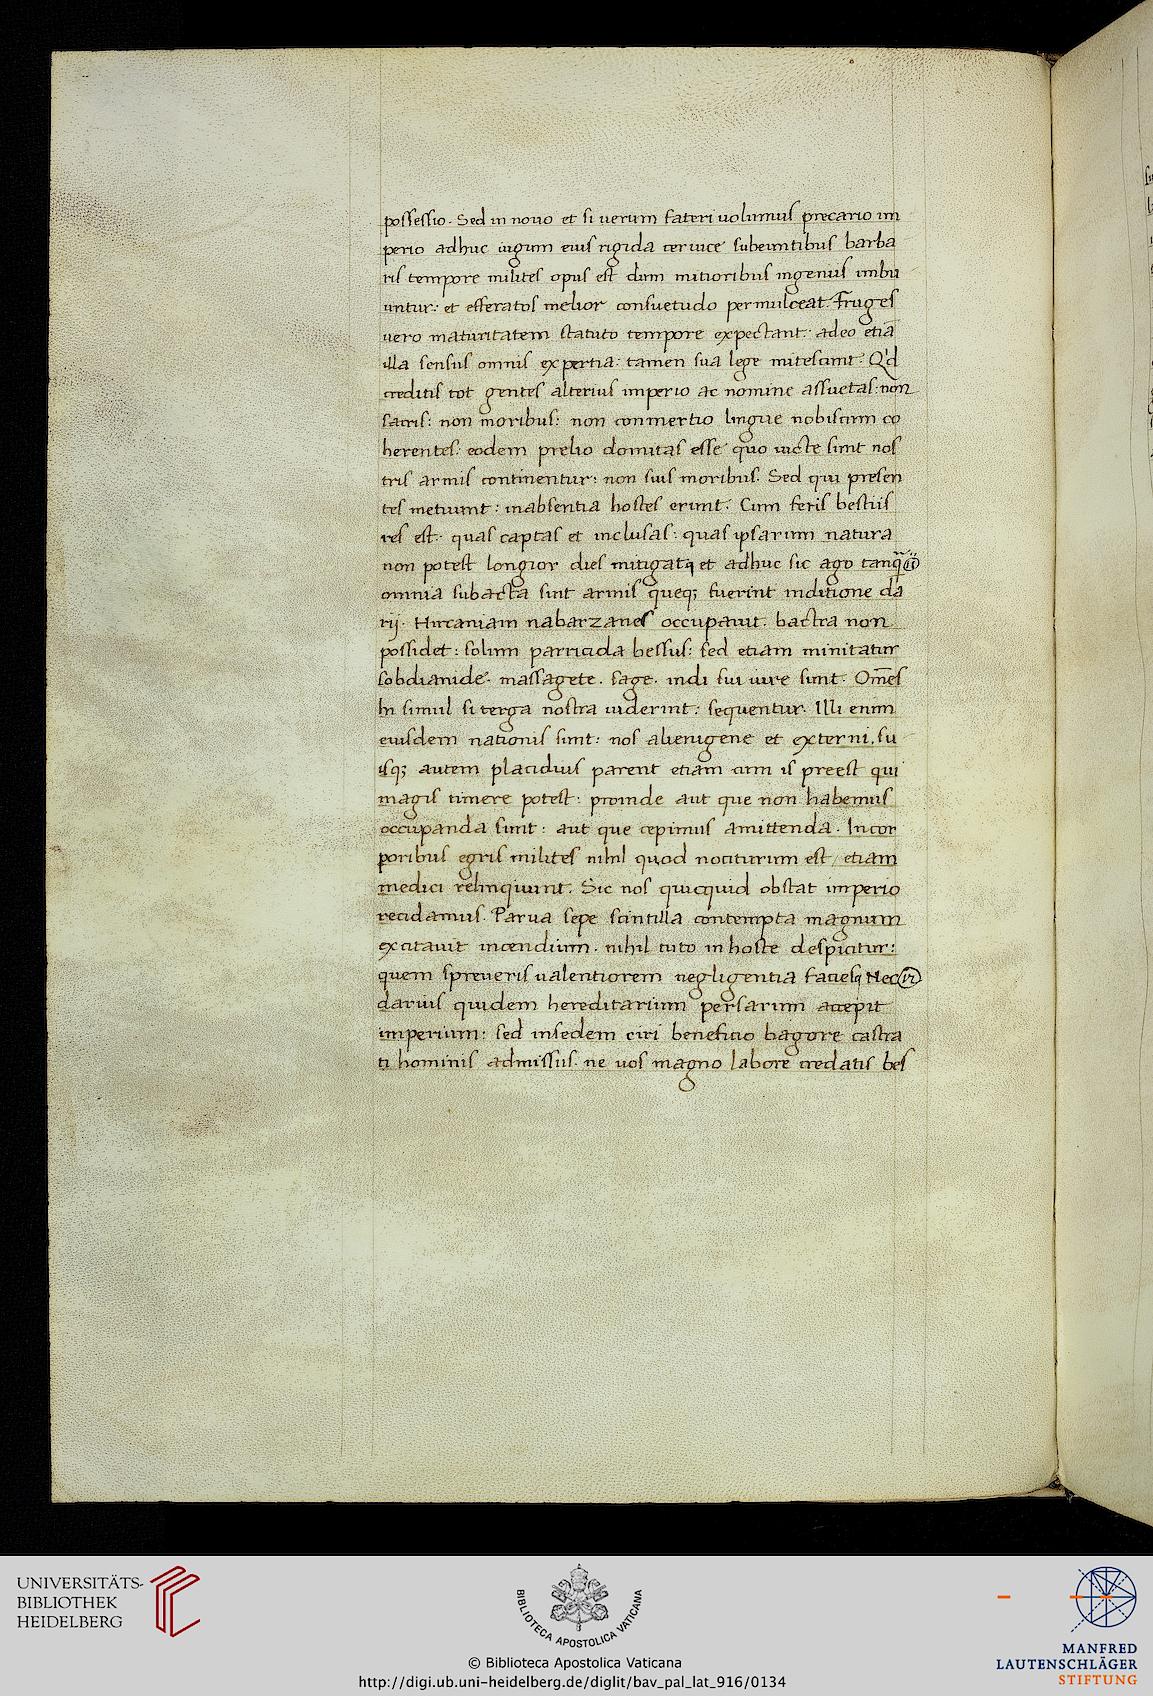 possessio. Sed in nouo et si uerum fateri uolumus precario im
perio adhuc iugum eius rigida ceruice subeuntibus barba
ris tempore milites opus est dum mitioribus ingeniis imbu
untur: et efferatos melior consuetudo permulceat. Fruges
uero maturitatem statuto tempore expectant: adeo etiā
illa sensus omnis expertia: tamen sua lege mitescunt. Q'd
creditis tot gentes alterius imperio ac nomine assuetas: non
sacris: non moribus: non conmertio lingue nobiscum co
herentes: eodem prelio domitas esse quo uicte sunt nos
tris armis continentur: non suis moribus. Sed qui presen
tes metuunt: in absentia hostes erunt. Cum feris bestiis
res est: quas captas et inclusas: quas ipsarum natura
non potest longior dies mitigat et adhuc sic ago tanq̄
omnia subacta sint armis queq; fuerint inditione da
rij. Hircaniam nabarzanes occupauit. bactra non
possidet: solum parricida bessus: sed etiam minitatur
sobdianide. massagete. sage. indi sui iure sunt. Om̄es
hi simul si terga nostra uiderint: sequentur. Illi enim
eiusdem nationis sunt: nos alienigene et externi. su
isq; autem placidius parent etiam cum is preest qui
magis timere potest: proinde aut que non habemus
occupanda sunt: aut que cepimus amittenda. Incor
poribus egris milites nihil quod nociturum est / etiam
medici relinquunt. Sic nos quicquid obstat imperio
recidamus. Parua sepe scintilla contempta magnum
excitauit incendium. nihil tuto in hoste despicitur:
quem spreueris ualentiorem negligentia facies Nec
darius quidem hereditarium persarum accepit
imperium: sed insedem ciri beneficio bagore castra
ti hominis admissus. ne uos magno labore credatis bes
UNIVERSITÄTS-
BIBLIOTHEK
HEIDELBERG
BIBLIOTECA APOSTOLICA VATICANA
MANFRED
LAUTENSCHLÄGER
STIFTUNG
© Biblioteca Apostolica Vaticana
http://digi.ub.uni-heidelberg.de/diglit/bav_pal_lat_916/0134